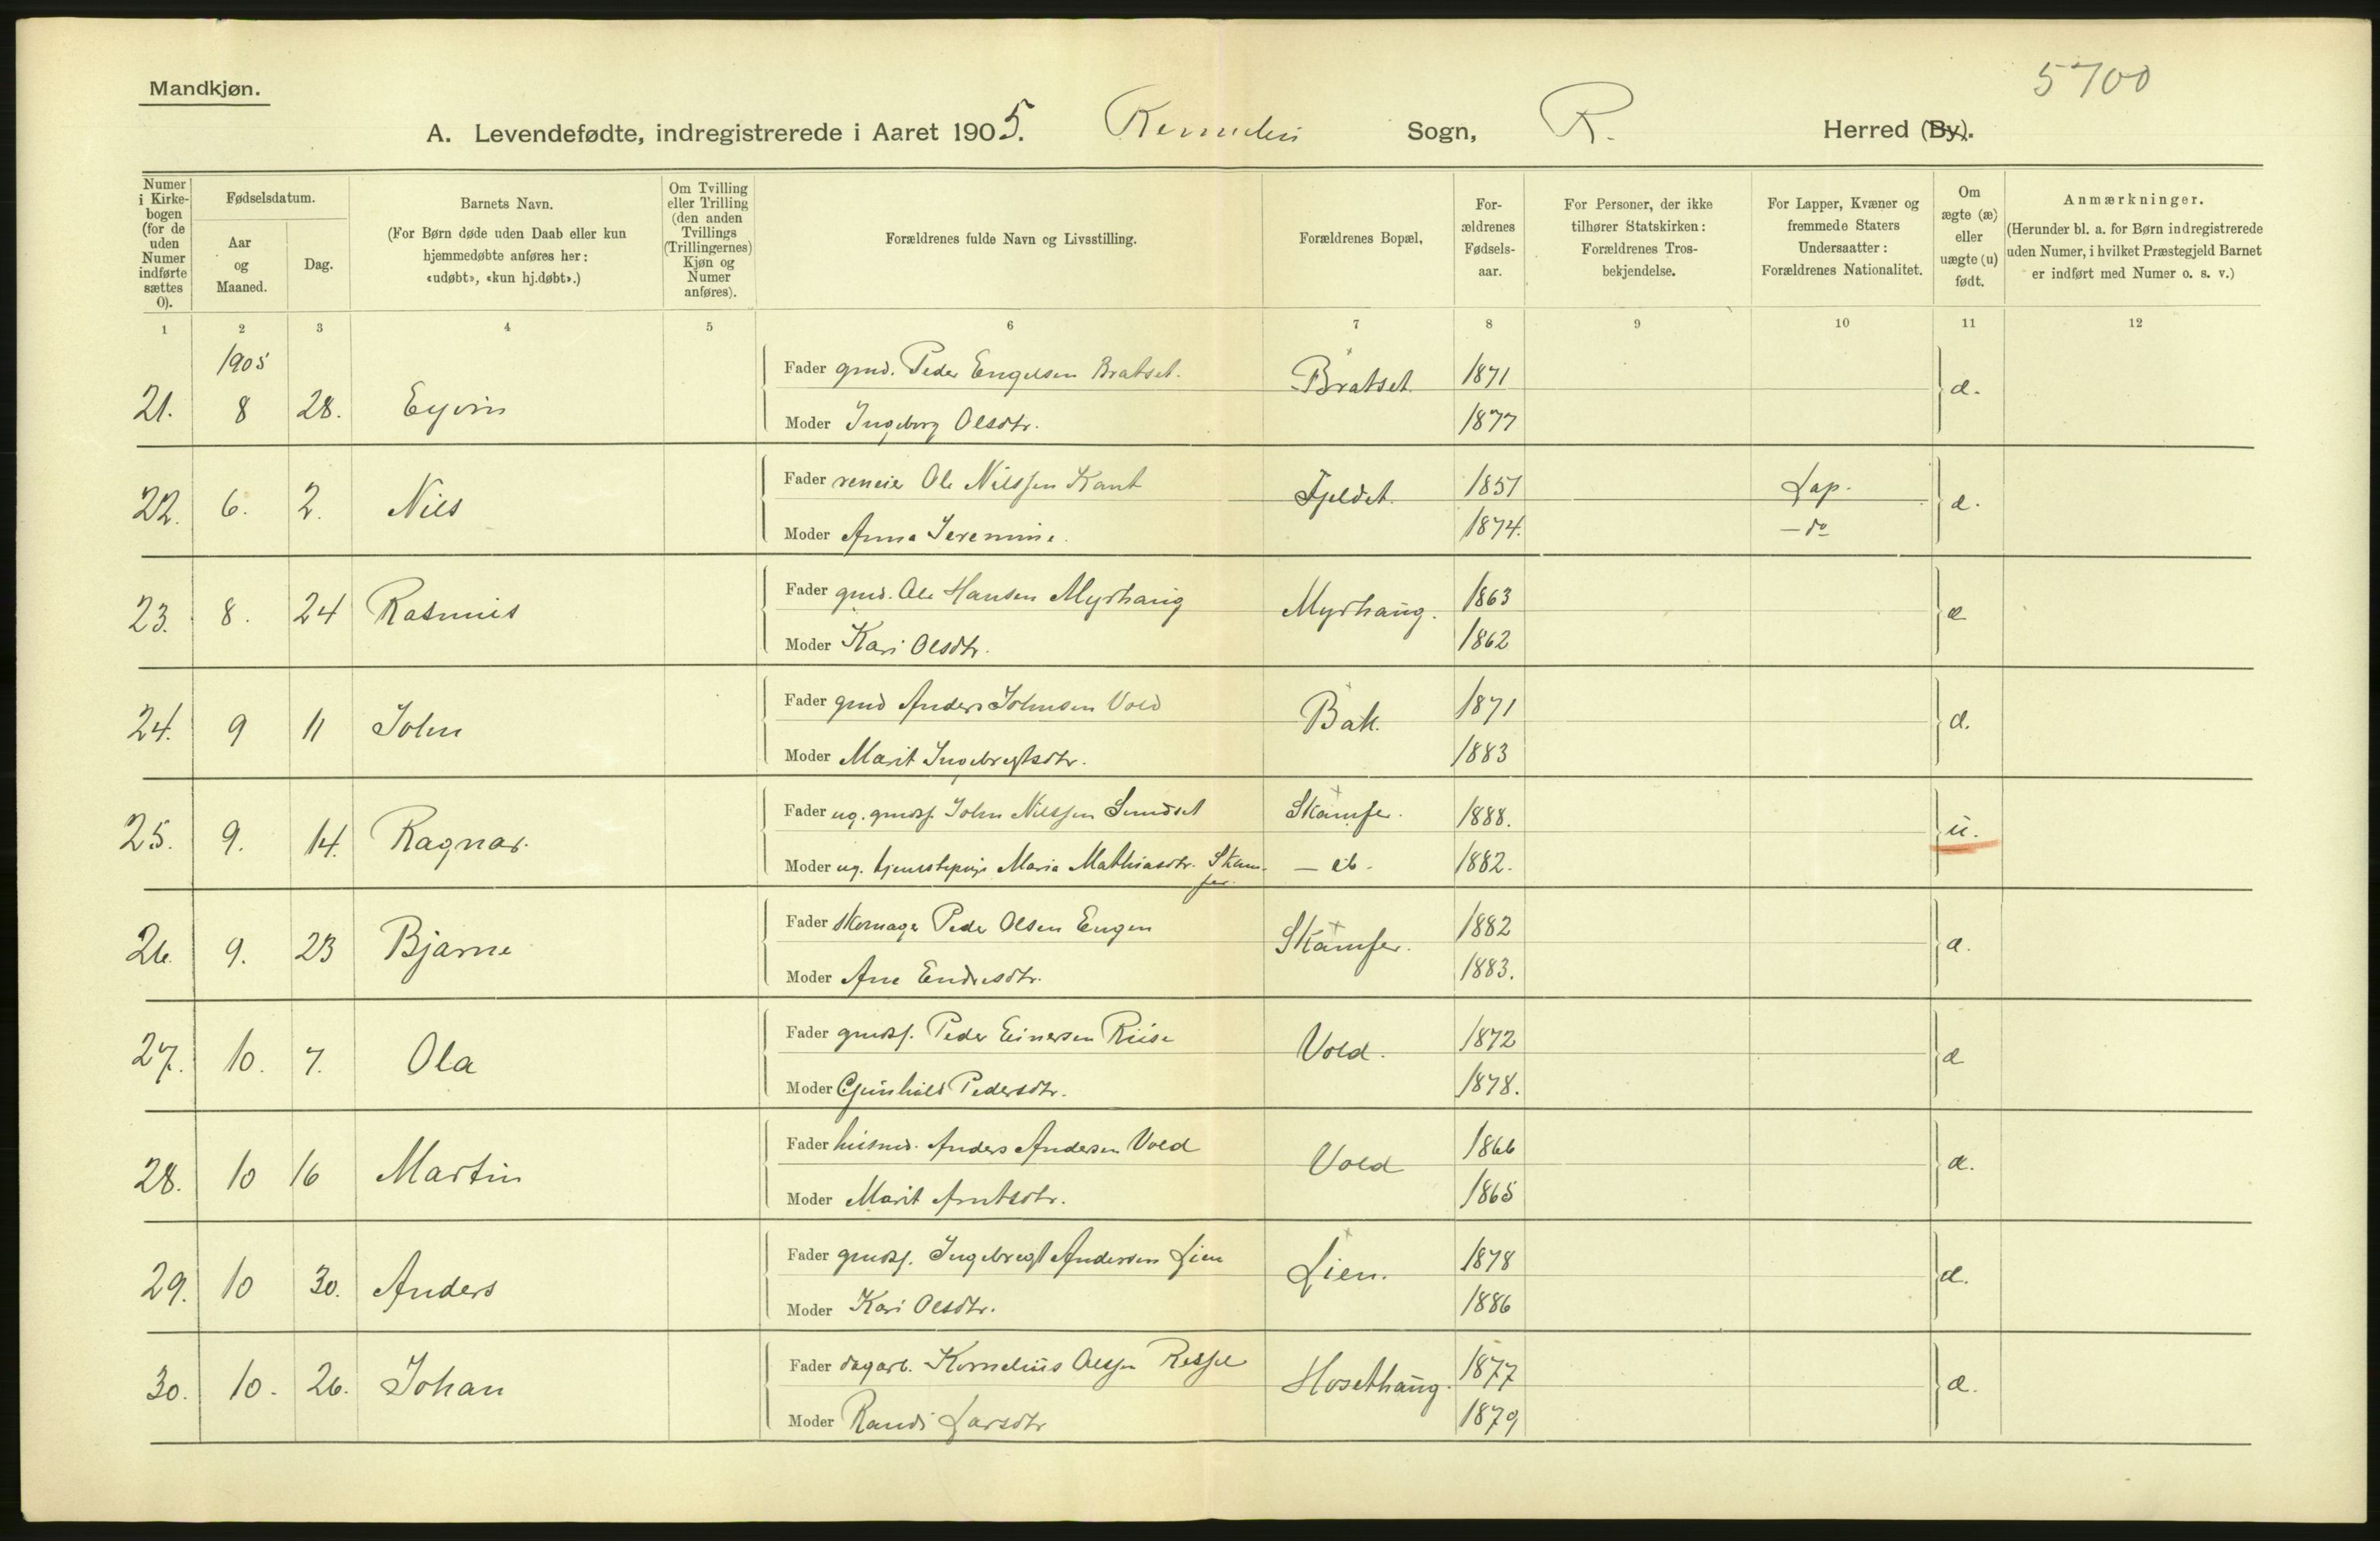 Mandkjøn.
5700
A. Levendefødte, indregistrerede i Aaret 1905. Rennebu Sogn, R. Herred (By).
Numer i Kirkebogen (for de uden Numer indførte sættes 0).
Fødselsdatum.
Aar og Maaned.
Dag.
Barnets Navn.
(For Børn døde uden Daab eller kun hjemmedøbte anføres her: «udøbt», «kun hj.døbt».)
Om Tvilling eller Trilling (den anden Tvillings (Trillingernes) Kjøn og Numer anføres).
Forældrenes fulde Navn og Livsstilling.
Forældrenes Bopæl.
Forældrenes Fødselsaar.
For Personer, der ikke tilhører Statskirken: Forældrenes Trosbekjendelse.
For Lapper, Kvæner og fremmede Staters Undersaatter: Forældrenes Nationalitet.
Om ægte (æ) eller uægte (u) født.
Anmærkninger.
(Herunder bl. a. for Børn indregistrerede uden Numer, i hvilket Præstegjeld Barnet er indført med Numer o. s. v.)
1 2 3 4 5 6 7 8 9 10 11 12
1905
21. 8 28. Eyvin Fader grmd. Peder Engelsen Bratset. Bratset. 1871 æ.
Moder Ingeborg Olsdtr. 1877
22. 6. 2. Nils Fader reneier Ole Nilssen Kant Fjeldet. 1851 Lap. æ.
Moder Anna Jeremine. 1874. — do
23. 8. 24 Rasmus Fader grmd. Ole Hansen Myrhaug Myrhaug. 1863 æ
Moder Kari Olsdtr. 1862
24. 9 11 John Fader grmd Anders Johnsen Vold Bak. 1871 æ.
Moder Marit Ingebregtsdtr. 1883
25. 9. 14. Ragnar. Fader ug. grmdss. John Nilssen Sundset Skamfer. 1888. u.
Moder ug. tjenestepige Maria Mathiasdtr. Skamfer. — ib - 1882.
26. 9. 23 Bjarne Fader skomager Peder Olsen Engen Skamfer. 1882 æ.
Moder Ane Endresdtr. 1883.
27. 10. 7. Ola Fader grmdss. Peder Einersen Riise Vold. 1872 æ
Moder Gunhild Pedersdtr. 1878.
28. 10 16 Martin Fader husmd. Anders Andersen Vold Vold 1866 æ.
Moder Marit Arntsdtr. 1865
29. 10 30. Anders Fader grmdss. Ingebregt Andersen Lien Lien. 1878 æ.
Moder Kari Olsdtr. 1886
30. 10. 26. Johan Fader dagarb. Kornelius Olssen Hosethaug. 1877 æ.
Moder Randi Larsdtr 1879